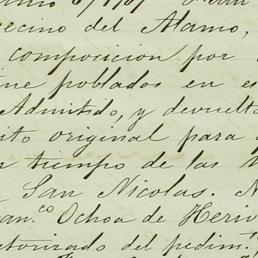 ecino del Alamo,
composicion por
ne poblados en es
Admitido, y devuelto
ito original para
tiempo de las
San Nicolas.
an.co Ochoa de Heriv
torizado del pedim.to